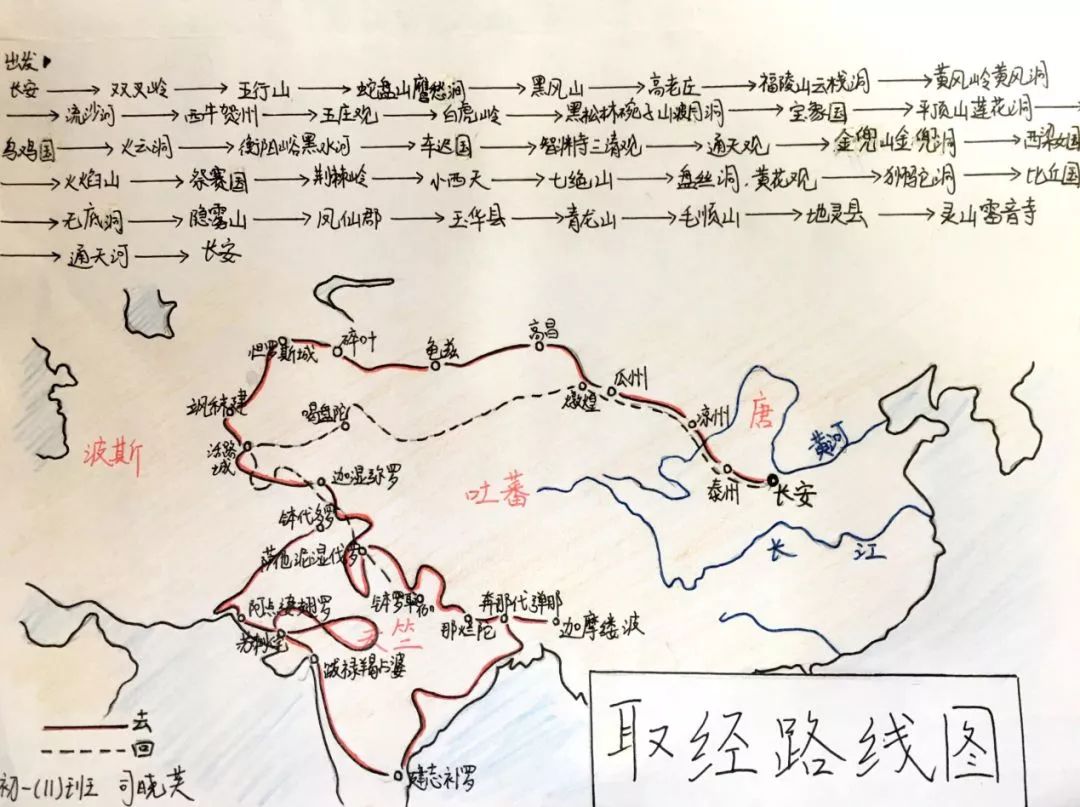 出发
长安→双叉岭→五行山→蛇盘山鹰愁涧→黑风山→高老庄→福陵山云栈洞→黄风岭黄风洞
→流沙河→西牛贺州→五庄观→白虎岭→黑松林碗子山波月洞→宝象国→平顶山莲花洞→
乌鸡国→火云洞→衡阳峪黑水河→车迟国→智渊寺三清观→通天观→金兜山金兜洞→西梁女国
→火焰山→祭赛国→荆棘岭→小西天→七绝山→盘丝洞.黄花观→狮驼洞→比丘国
→无底洞→隐雾山→凤仙郡→玉华县→青龙山→毛顺山→地灵县→灵山雷音寺
→通天河→长安
怛罗斯城
碎叶
龟兹
高昌
瓜州
敦煌
凉州
唐
黄河
飒秣建
喝盘陀
活路城
波斯
迦湿弥罗
吐蕃
秦州
长安
钵代多罗
长江
萨他泥湿伐罗
钵罗耶伽
阿点婆翅罗
苏剌佗
天竺
那烂陀
奔那伐弹那
迦摩缕波
跋禄羯占婆
建志补罗
去
回
取经路线图
初一(11)班 司晓芙